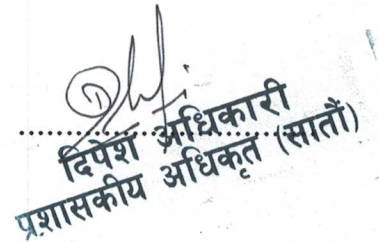 दिपेश अधिकारी
प्रशासकीय अधिकृत (सातौं)